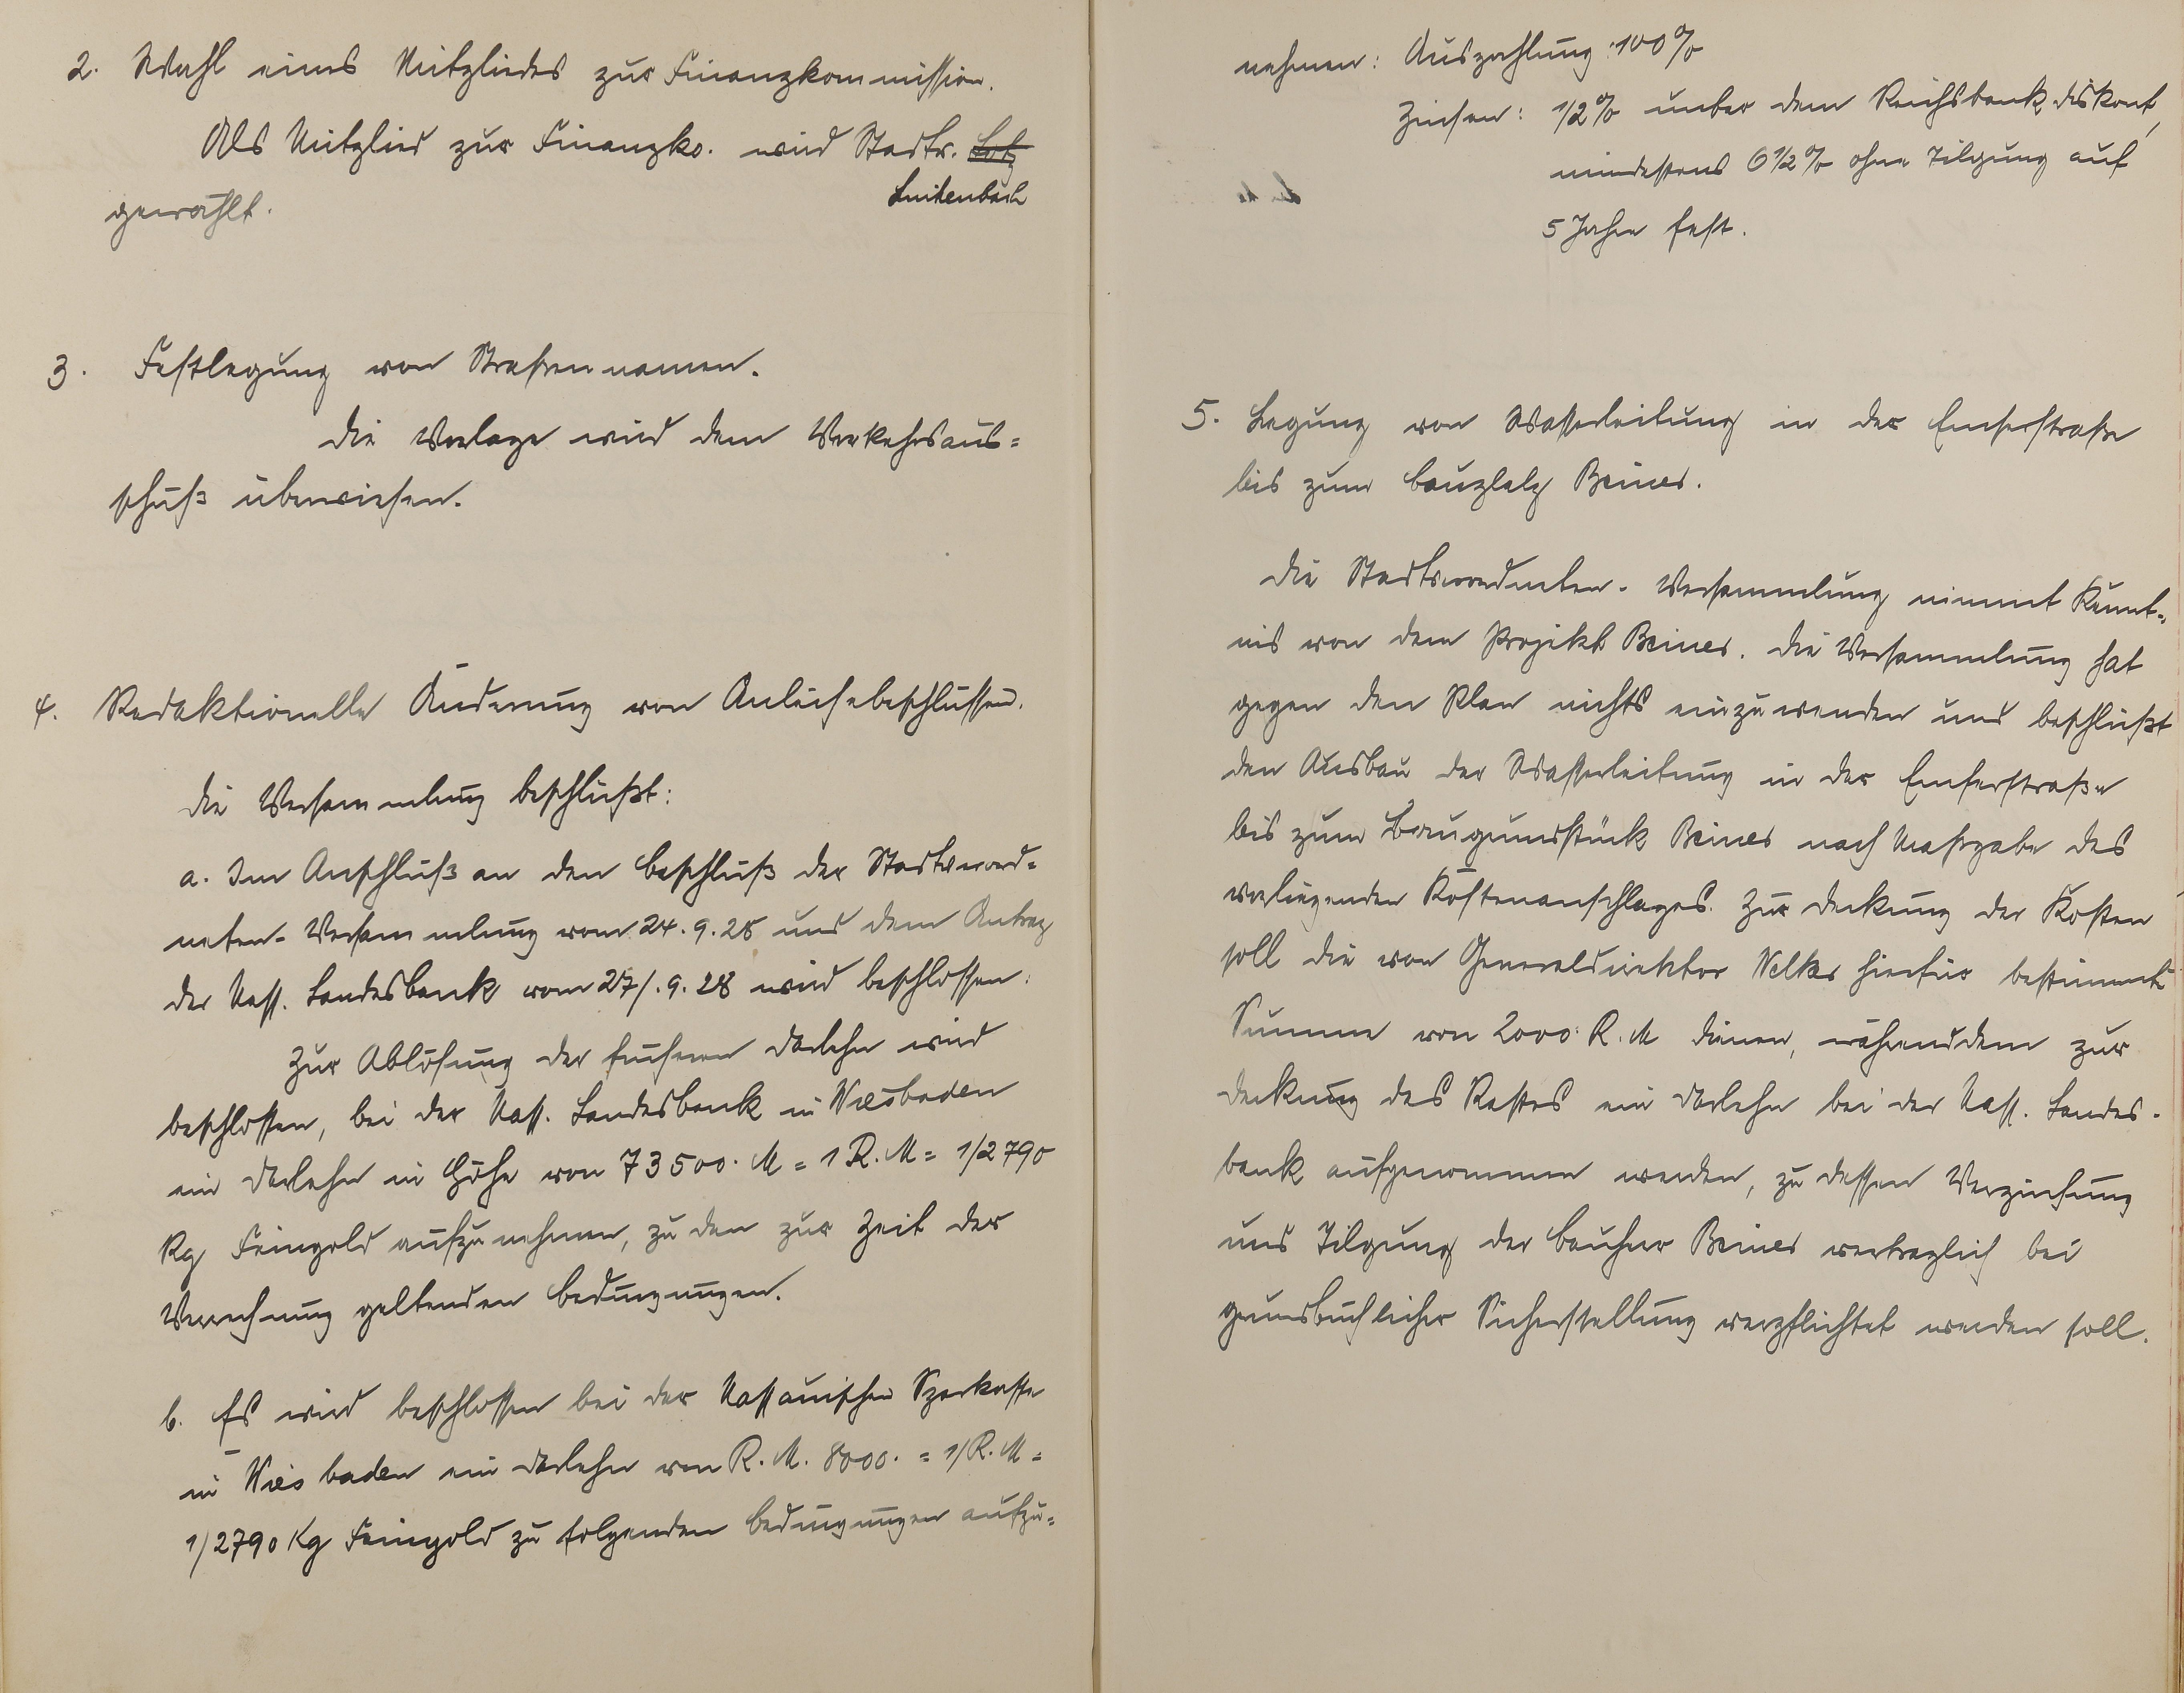 2. Wahl eines Mitgliedes zur Finanzkommission.
Als Mitglied zur Finanzko. wird Stadtv. Lotz
Leikenbach
gewählt.
3. Festlegung von Straßennamen.
Die Vorlage wird dem Verkehrsaus=
schuß überwiesen.
4. Redaktionelle Änderung von Anleihebeschlüssen.
Die Versammlung beschließt:
a. Im Anschluß an den Beschluß der Stadtverord=
neten-Versammlung vom 24.9.28 und dem Antrag
der Nass. Landesbank vom 27/.9.28 wird beschlossen:
Zur Ablösung der früheren Darlehn wird
beschlossen, bei der Nass. Landesbank in Wiesbaden
ein Darlehn in Höhe von 73500. M = 1 R.M = 1/2790
Kg Feingold aufzunehmen, zu den zur Zeit der
Verrechnung geltenden Bedingungen.
b. Es wird beschlossen bei der Nassauischen Sparkasse
in Wiesbaden ein Darlehn von R.M. 8000. = 1/R.M =
1/2790 Kg Feingold zu folgenden Bedingungen aufzu=
nehmen: Auszahlung: 100%
Zinsen: 1/2% unter dem Reichsbankdiskont,
mindestens 6 1/2% ohne Tilgung auf
5 Jahre fest.
5. Legung von Wasserleitung in der Emserstraße
bis zum Bauplatz Beines.
Die Stadtverordneten-Versammlung nimmt Kennt=
nis von dem Projekt Beines. Die Versammlung hat
gegen den Plan nichts einzuwenden und beschließt
den Ausbau der Wasserleitung in der Emserstraße
bis zum Baugrundstück Beines nach Maßgabe des
vorliegenden Kostenanschlages. Zur Deckung der Kosten
soll die von Generaldirektor Welker hierfür bestimmte
Summe von 2000. R.M dienen, währenddem zur
Deckung des Restes ein Darlehn bei der Nass. Landes-
bank aufgenommen werden, zu dessen Verzinsung
und Tilgung der Bauherr Beines vertraglich bei
grundbuchlicher Sicherstellung verpflichtet werden soll.